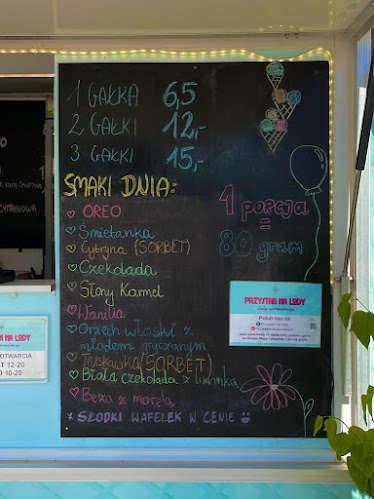 1 GAŁKA 6,5
2 GAŁKI 12,-
3 GAŁKI 15,-
SMAKI DNIA:
OREO
Śmietanka
Cytryna (SORBET)
Czekolada
Słony Karmel
Wanilia
Orzech włoski z
miodem gryczanym
Truskawka (SORBET)
Biała czekolada z limonką
Beza z morelą
* SŁODKI WAFELEK W CENIE
1 porcja
=
80 gram
PRZYSTAŃ NA LODY
Polub nas na
NA LODY
OTWARCIA
12-20
10-20